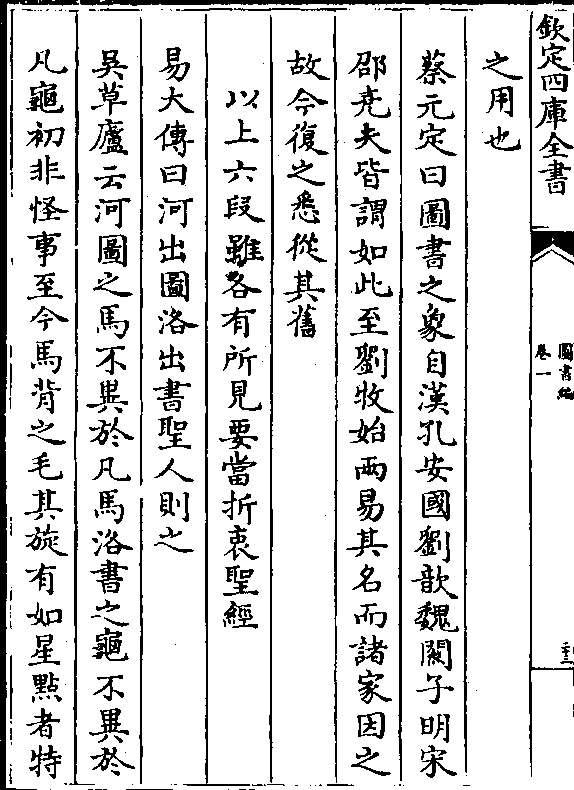 欽定四庫全書
圖書編
卷一
之用也
蔡元定曰圖書之象自漢孔安國劉歆魏關子明宋
邵堯夫皆謂如此至劉牧始兩易其名而諸家因之
故今復之悉從其舊
以上六段雖各有所見要當折衷聖經
易大傳曰河出圖洛出書聖人則之
吳草廬云河圖之馬不異於凡馬洛書之龜不異於
凡龜初非怪事至今馬背之毛其旋有如星點者特